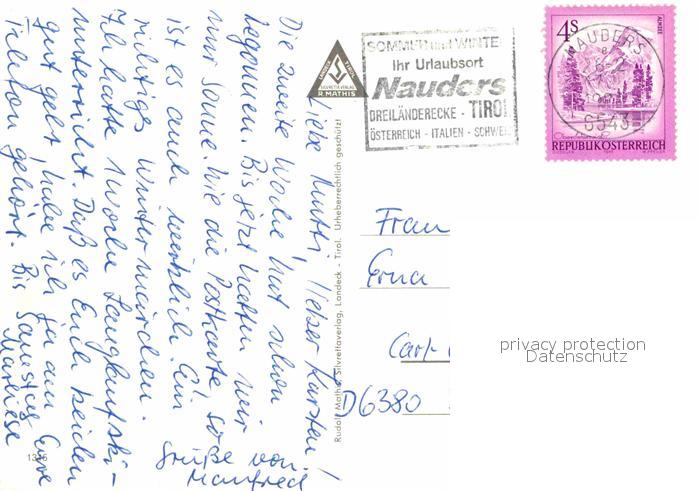 Liebe Mutti, lieber Karsten!
Die zweite Woche hat schon
begonnen. Bis jetzt hatten wir
nur Sonne. Wie die Postkarte, so
ist es auch wirklich. Ein
richtiges Wintermärchen.
Ich hatte 1 Woche Langlaufski-
unterricht. Daß es Euch beiden
gut geht habe ich ja am
Telefon gehört. Bis Samstag Eure
Marliese
Grüße von
Manfred
1345
LANDECK TIROL
SILVRETTA VERLAG
R. MATHIS
Rudolf Mathis, Silvrettaverlag, Landeck - Tirol. Urheberrechtlich geschützt!
SOMMER und WINTER
Ihr Urlaubsort
Nauders
DREILÄNDERECKE - TIROL
ÖSTERREICH - ITALIEN - SCHWEIZ
4S
ALMSEE
NAUDERS
6543
REPUBLIK ÖSTERREICH
Frau
Erna
Carl-
D6380
privacy protection
Datenschutz